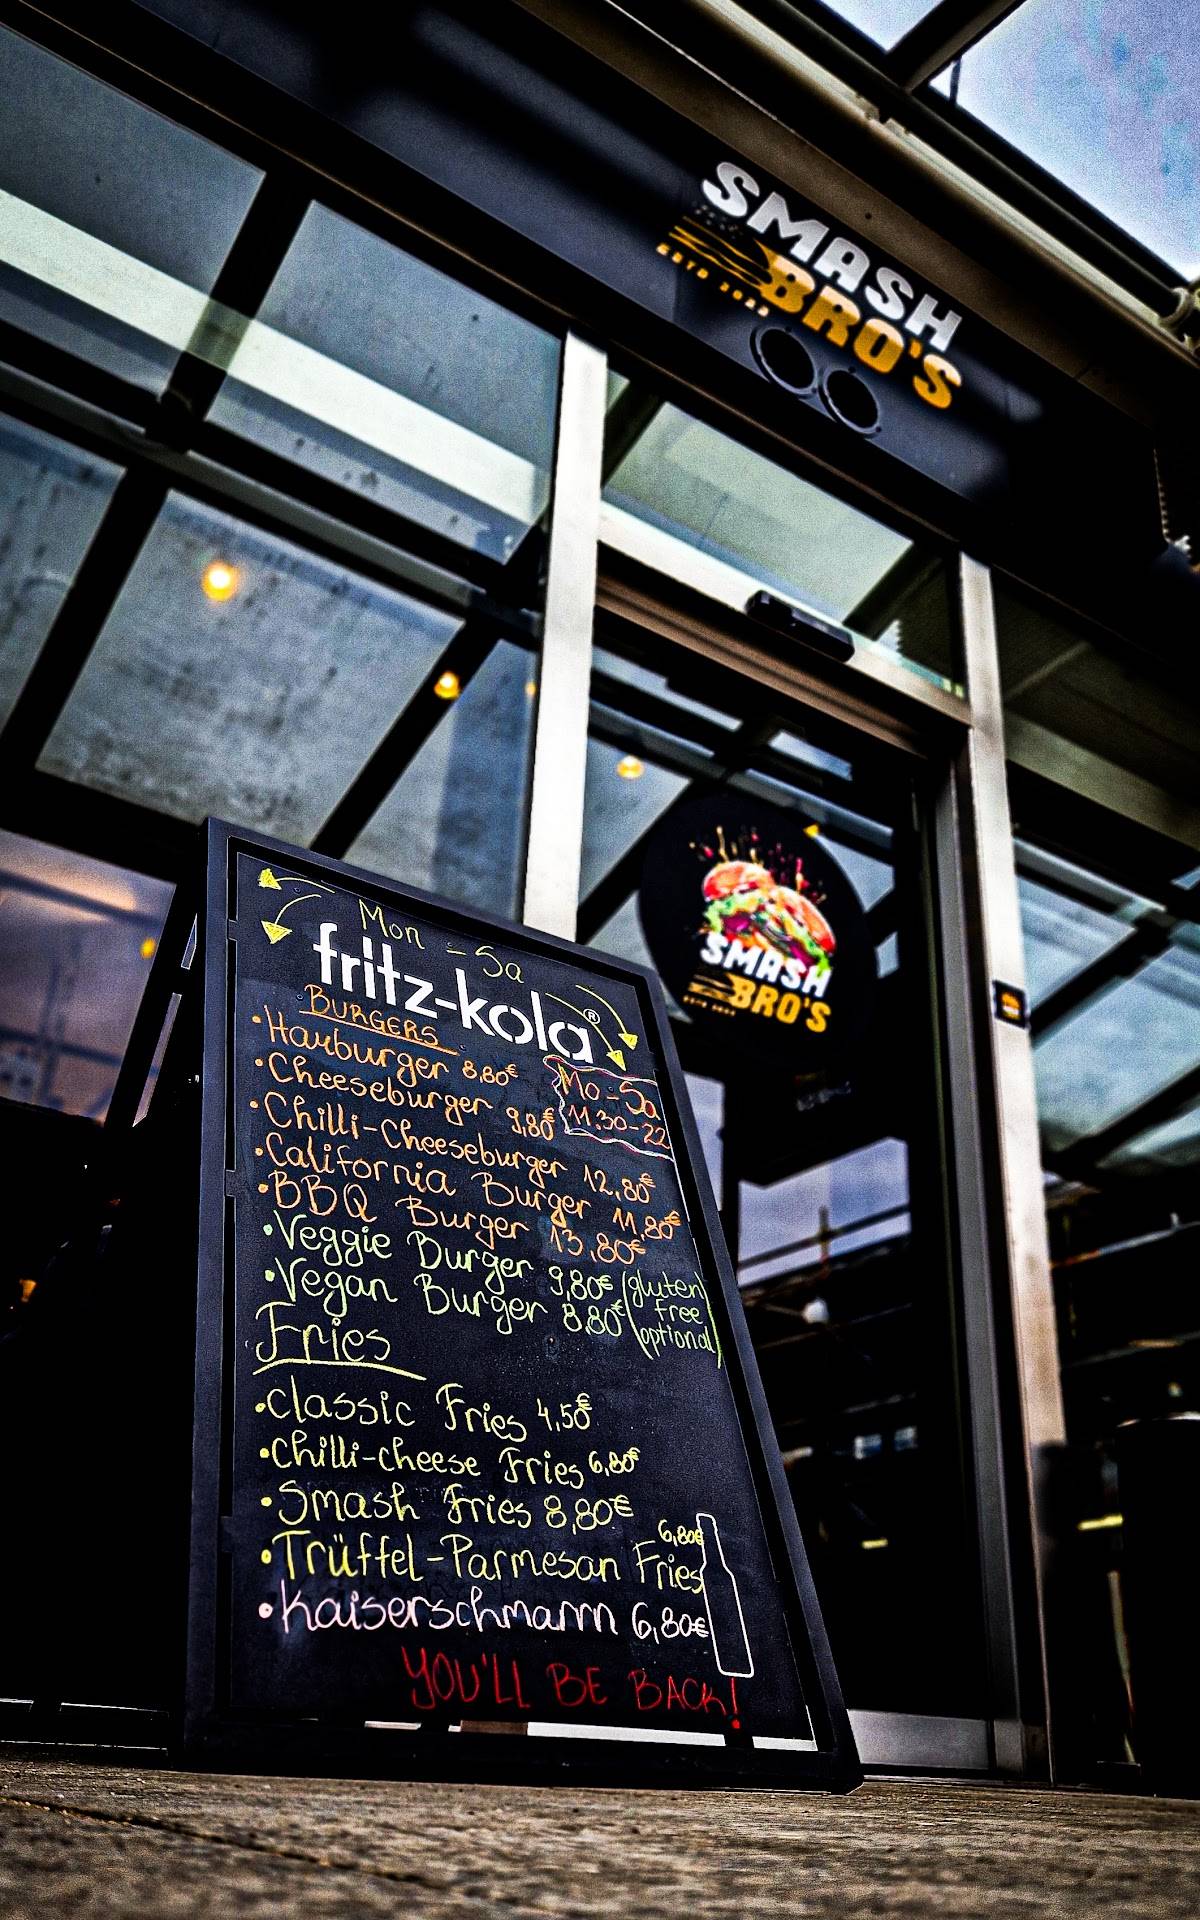 SMASH
BRO'S
SMASH
BRO'S
Mon - Sa
fritz-kola®
BURGERS
•Hamburger 8,80€
•Cheeseburger 9,80€
Mo-Sa
11.30-22
•Chilli-Cheeseburger 12,80€
•California Burger 11,80€
•BBQ Burger 13,80€
•Veggie Burger 9,80€ (gluten
•Vegan Burger 8,80€ free
optional)
Fries
•Classic Fries 4,50€
•Chilli-cheese Fries 6,80€
•Smash Fries 8,80€
•Trüffel-Parmesan Fries 6,80€
•Kaiserschmarrn 6,80€
YOU'LL BE BACK!